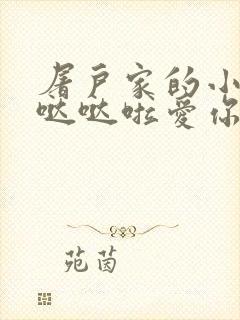 屠户家的小
哒哒啦爱你
苑茵